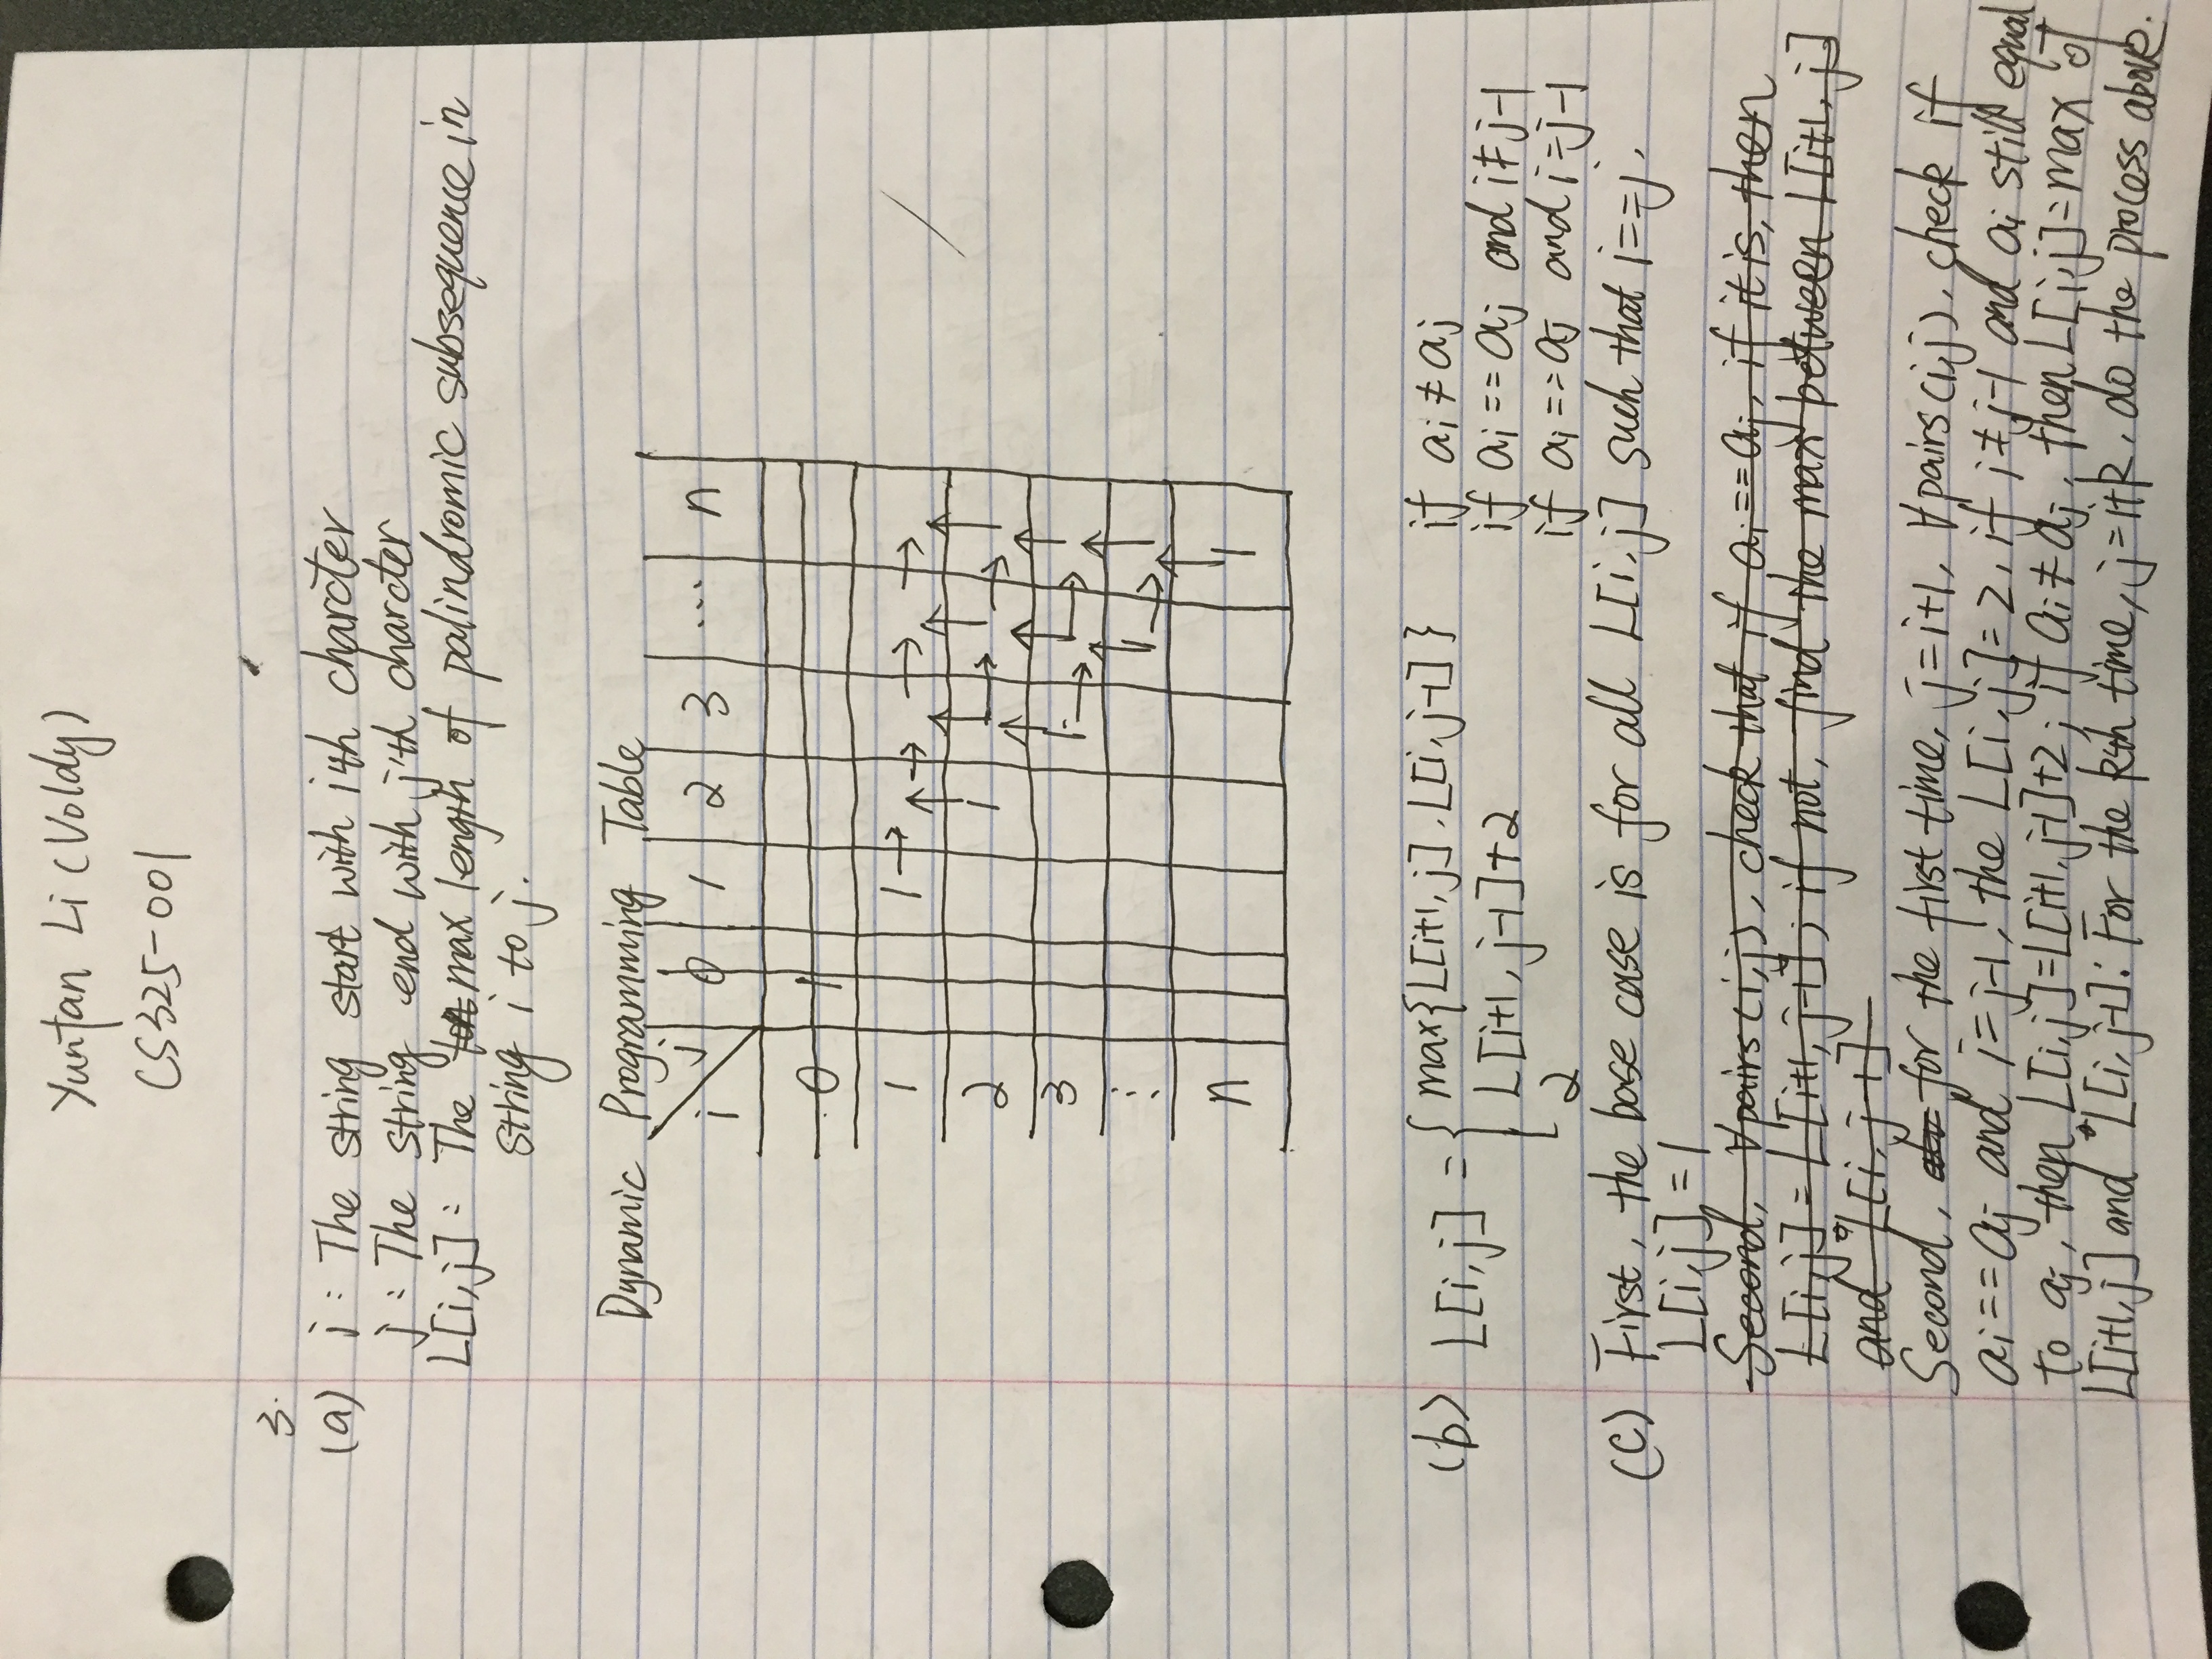 Yuntan Li (Voldy)
CS325-001
3.
(a) i : The string start with i'th charcter
j : The string end with j'th charcter
L[i,j] : The max length of palindromic subsequence in
string i to j.
Dynamic Programming Table
i j 0 1 2 3 ... n
0 1
1 1 → ↑ → ↑ → ↑ → ↑
2 1 ↑ → ↑ → ↑
3 1 → ↑ → ↑
⋮ 1 → ↑
n 1
(b) L[i,j] = { max{L[i+1,j], L[i,j-1]} if ai ≠ aj
L[i+1, j-1]+2 if ai == aj and i≠j-1
2 if ai == aj and i=j-1
(c) First, the base case is for all L[i,j] such that i==j,
L[i,j] = 1
Second, ∀pairs(i,j), check that if ai == aj, if it is, then
L[i,j] = L[i+1, j-1]; if not, find the max between L[i+1, j]
and L[i, j-1]
Second, for the first time, j=i+1, ∀pairs(i,j), check if
ai == aj and i=j-1, the L[i,j]=2, if i≠j-1 and ai still equal
to aj, then L[i,j]=L[i+1,j-1]+2; if ai ≠ aj, then L[i,j]=max of
L[i+1,j] and L[i,j-1]: For the kth time, j=i+k, do the process above.